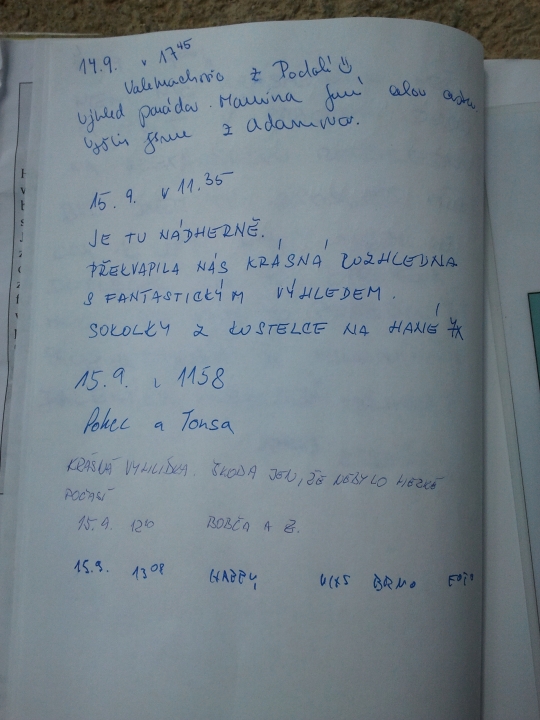 14.9. v 17⁴⁵
z Podolí ☺
Výhled parádní. Mamina funí celou cestu.
Vyšli jsme z Adamova.
15.9. v 11.35
JE TU NÁDHERNĚ.
PŘEKVAPILA NÁS KRÁSNÁ ROZHLEDNA
S FANTASTICKÝM VÝHLEDEM.
SOKOLKY Z KOSTELCE NA HANÉ 4x
15.9. 1158
a Tonsa
KRÁSNÁ VYHLÍDKA. ŠKODA JEN, ŽE NEBYLO HEZKÉ
POČASÍ
15.9. 12⁴⁰ BOBČA A
15.9. 13⁰⁸ BRNO